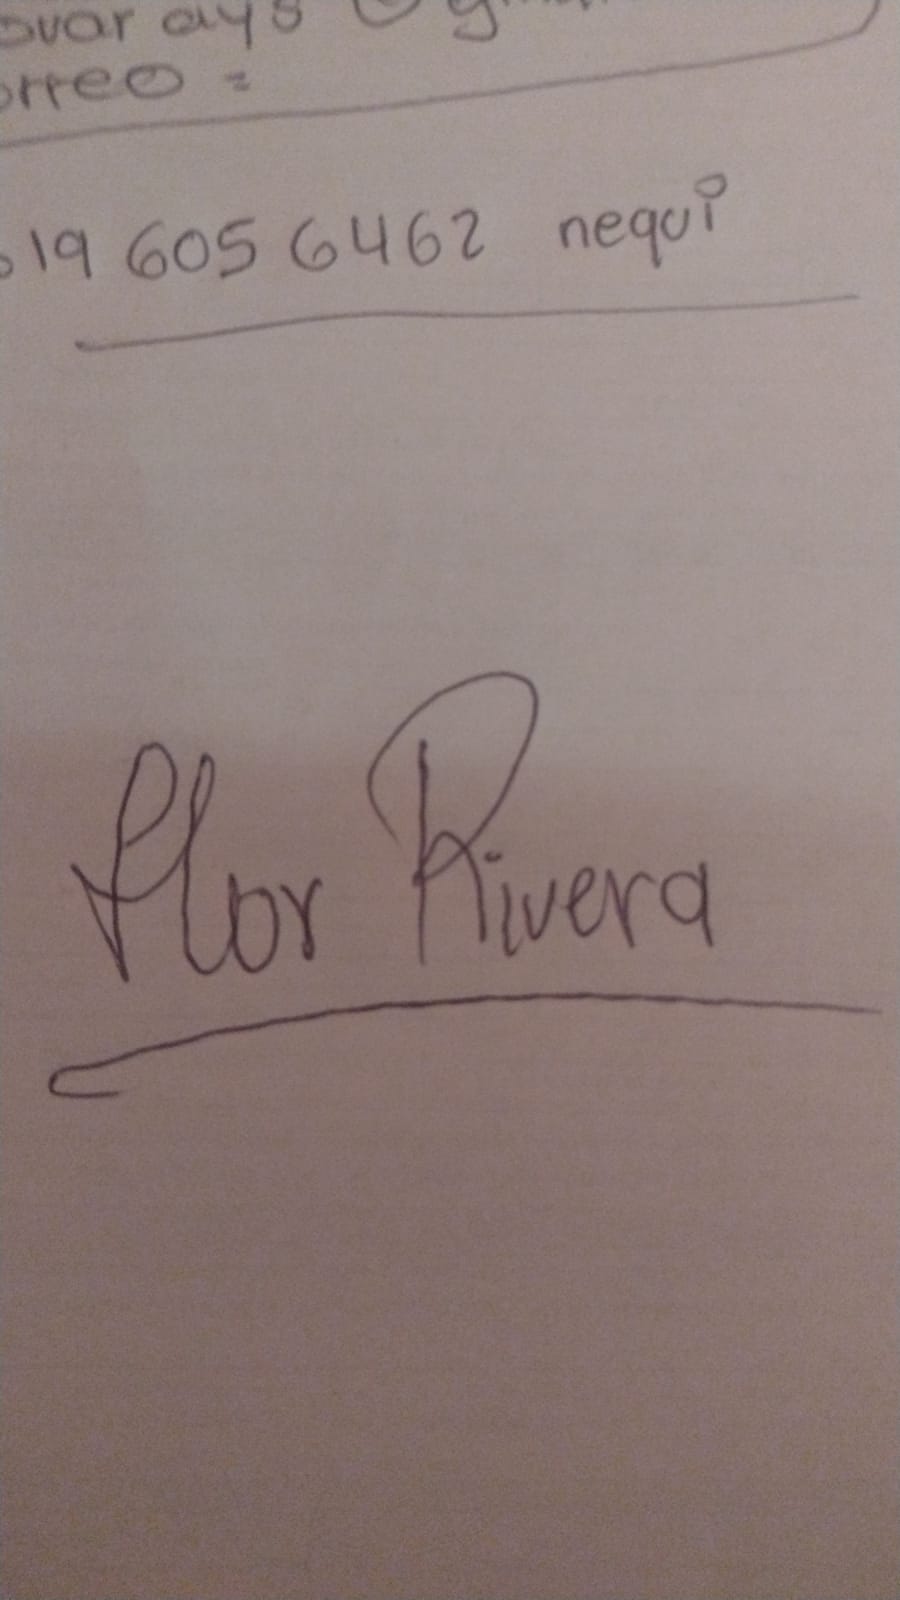 ovar ays @ gm
orreo =
319 605 6462 nequi
Flor Rivera